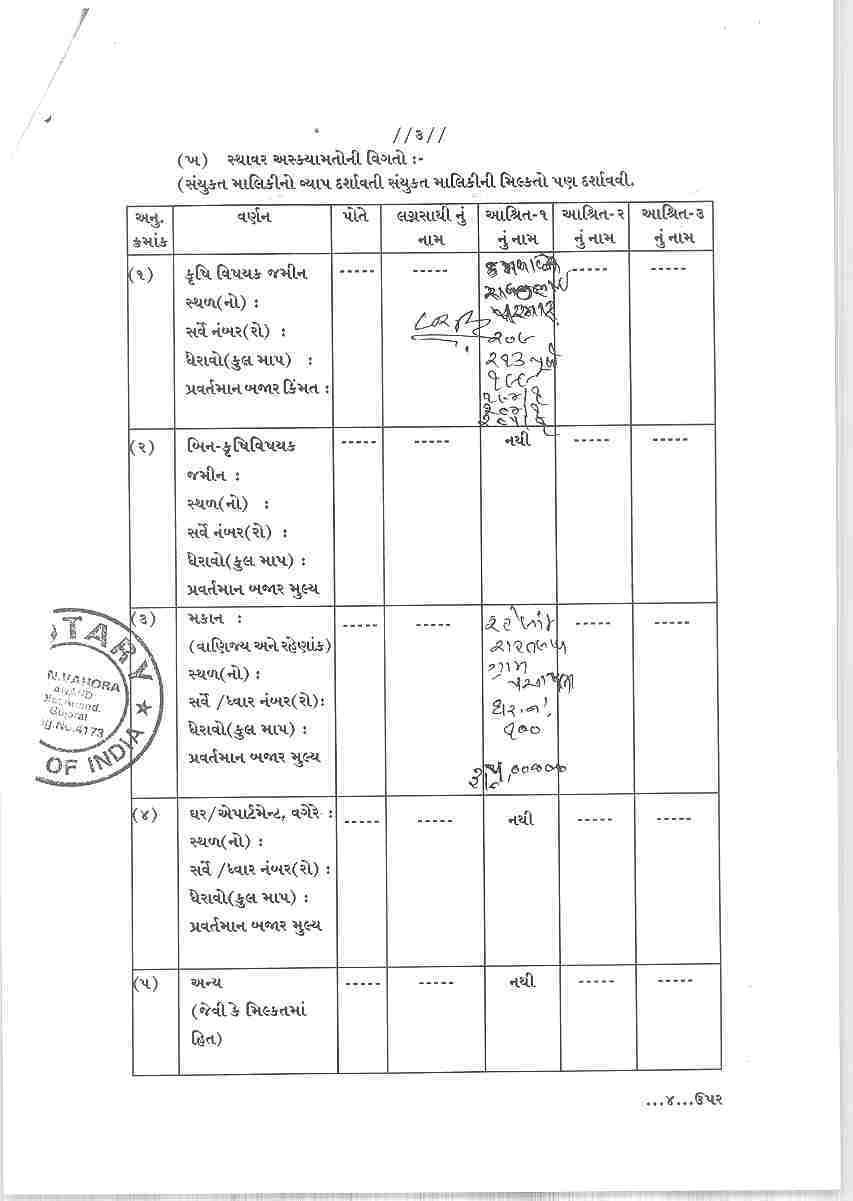 //૩//
(ખ) સ્થાવર અસ્કયામતોની વિગતો :-
(સંયુકત માલિકીનો વ્યાપ દર્શાવતી સંયુકત માલિકીની મિલ્કતો પણ દર્શાવવી.
અનુ. ક્રમાંક વર્ણન પોતે લગ્નસાથી નું નામ આશ્રિત-૧ નું નામ આશ્રિત-૨ નું નામ આશ્રિત-૩ નું નામ
(૧) કૃષિ વિષયક જમીન ----- ----- ----- -----
સ્થળ(નો) :
સર્વે નંબર(રો) :
ઘેરાવો(કુલ માપ) :
પ્રવર્તમાન બજાર કિંમત :
પરમાર
૨૦૯
૨૧૩
(૨) બિન-કૃષિવિષયક ----- ----- નથી ----- -----
જમીન :
સ્થળ(નો) :
સર્વે નંબર(રો) :
ઘેરાવો(કુલ માપ) :
પ્રવર્તમાન બજાર મુલ્ય
(૩) મકાન : ----- ----- ----- -----
(વાણિજય અને રહેણાંક)
સ્થળ(નો) :
સર્વે /ધ્વાર નંબર(રો):
ઘેરાવો(કુલ માપ) :
પ્રવર્તમાન બજાર મુલ્ય
ગ્રામ
ઘર.નં.
૧૦૦
(૪) ઘર/એપાર્ટમેન્ટ, વગેરે : ----- ----- નથી ----- -----
સ્થળ(નો) :
સર્વે /ધ્વાર નંબર(રો) :
ઘેરાવો(કુલ માપ) :
પ્રવર્તમાન બજાર મુલ્ય
(૫) અન્ય ----- ----- નથી ----- -----
(જેવી કે મિલ્કતમાં
હિત)
...૪...ઉપર
OTARY
N.VAHORA
ANAND
Gujarat
g.No.4173
OF INDIA